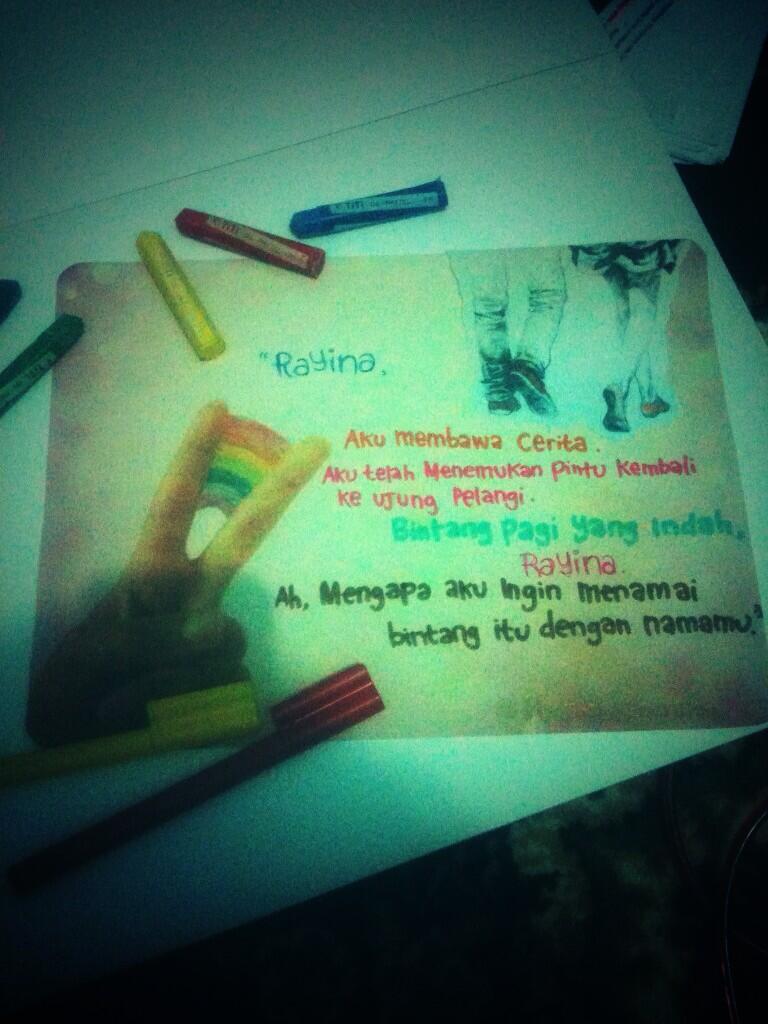 "Rayina,
Aku membawa cerita.
Aku telah Menemukan Pintu Kembali
ke ujung Pelangi.
Bintang Pagi yang Indah,
Rayina.
Ah, Mengapa aku Ingin menamai
bintang itu dengan namamu."
TiTi
TiTi